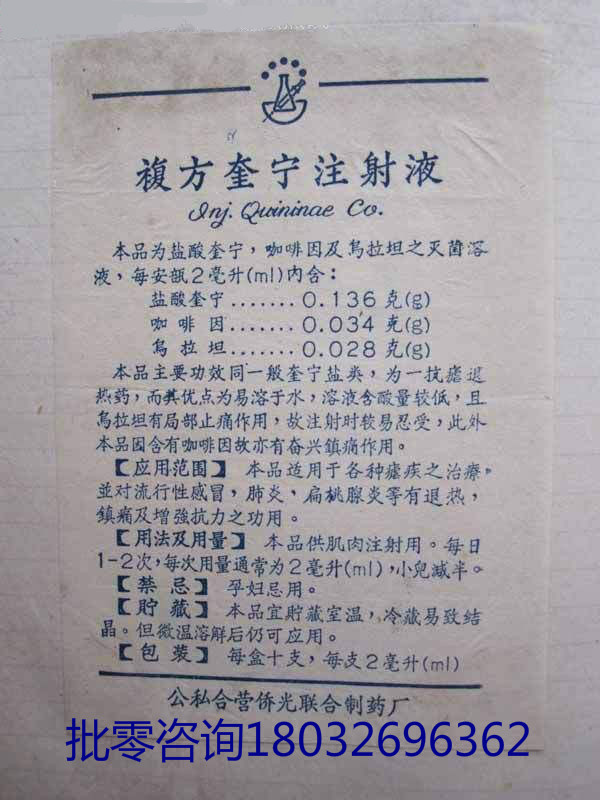 複方奎宁注射液
Inj. Quininae Co.
本品为盐酸奎宁，咖啡因及烏拉坦之灭菌溶
液，每安瓿2毫升(ml)内含：
盐酸奎宁.......0.136克(g)
咖啡因.......0.034克(g)
烏拉坦.......0.028克(g)
本品主要功效同一般奎宁盐类，为一抗瘧退
热药，而其优点为易溶于水，溶液含酸量较低，且
烏拉坦有局部止痛作用，故注射时较易忍受，此外
本品因含有咖啡因故亦有奋兴鎮痛作用。
【应用范围】本品适用于各种瘧疾之治療。
並对流行性感冒，肺炎，扁桃腺炎等有退热，
鎮痛及增強抗力之功用。
【用法及用量】本品供肌肉注射用。每日
1-2次，每次用量通常为2毫升(ml)，小兒减半。
【禁忌】孕妇忌用。
【貯藏】本品宜貯藏室温，冷藏易致结
晶。但微温溶解后仍可应用。
【包装】每盒十支，每支2毫升(ml)
公私合营侨光联合制药厂
批零咨询18032696362